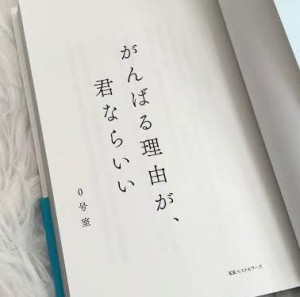 がんばる理由が、
君ならいい
0号室
KKベストセラーズ